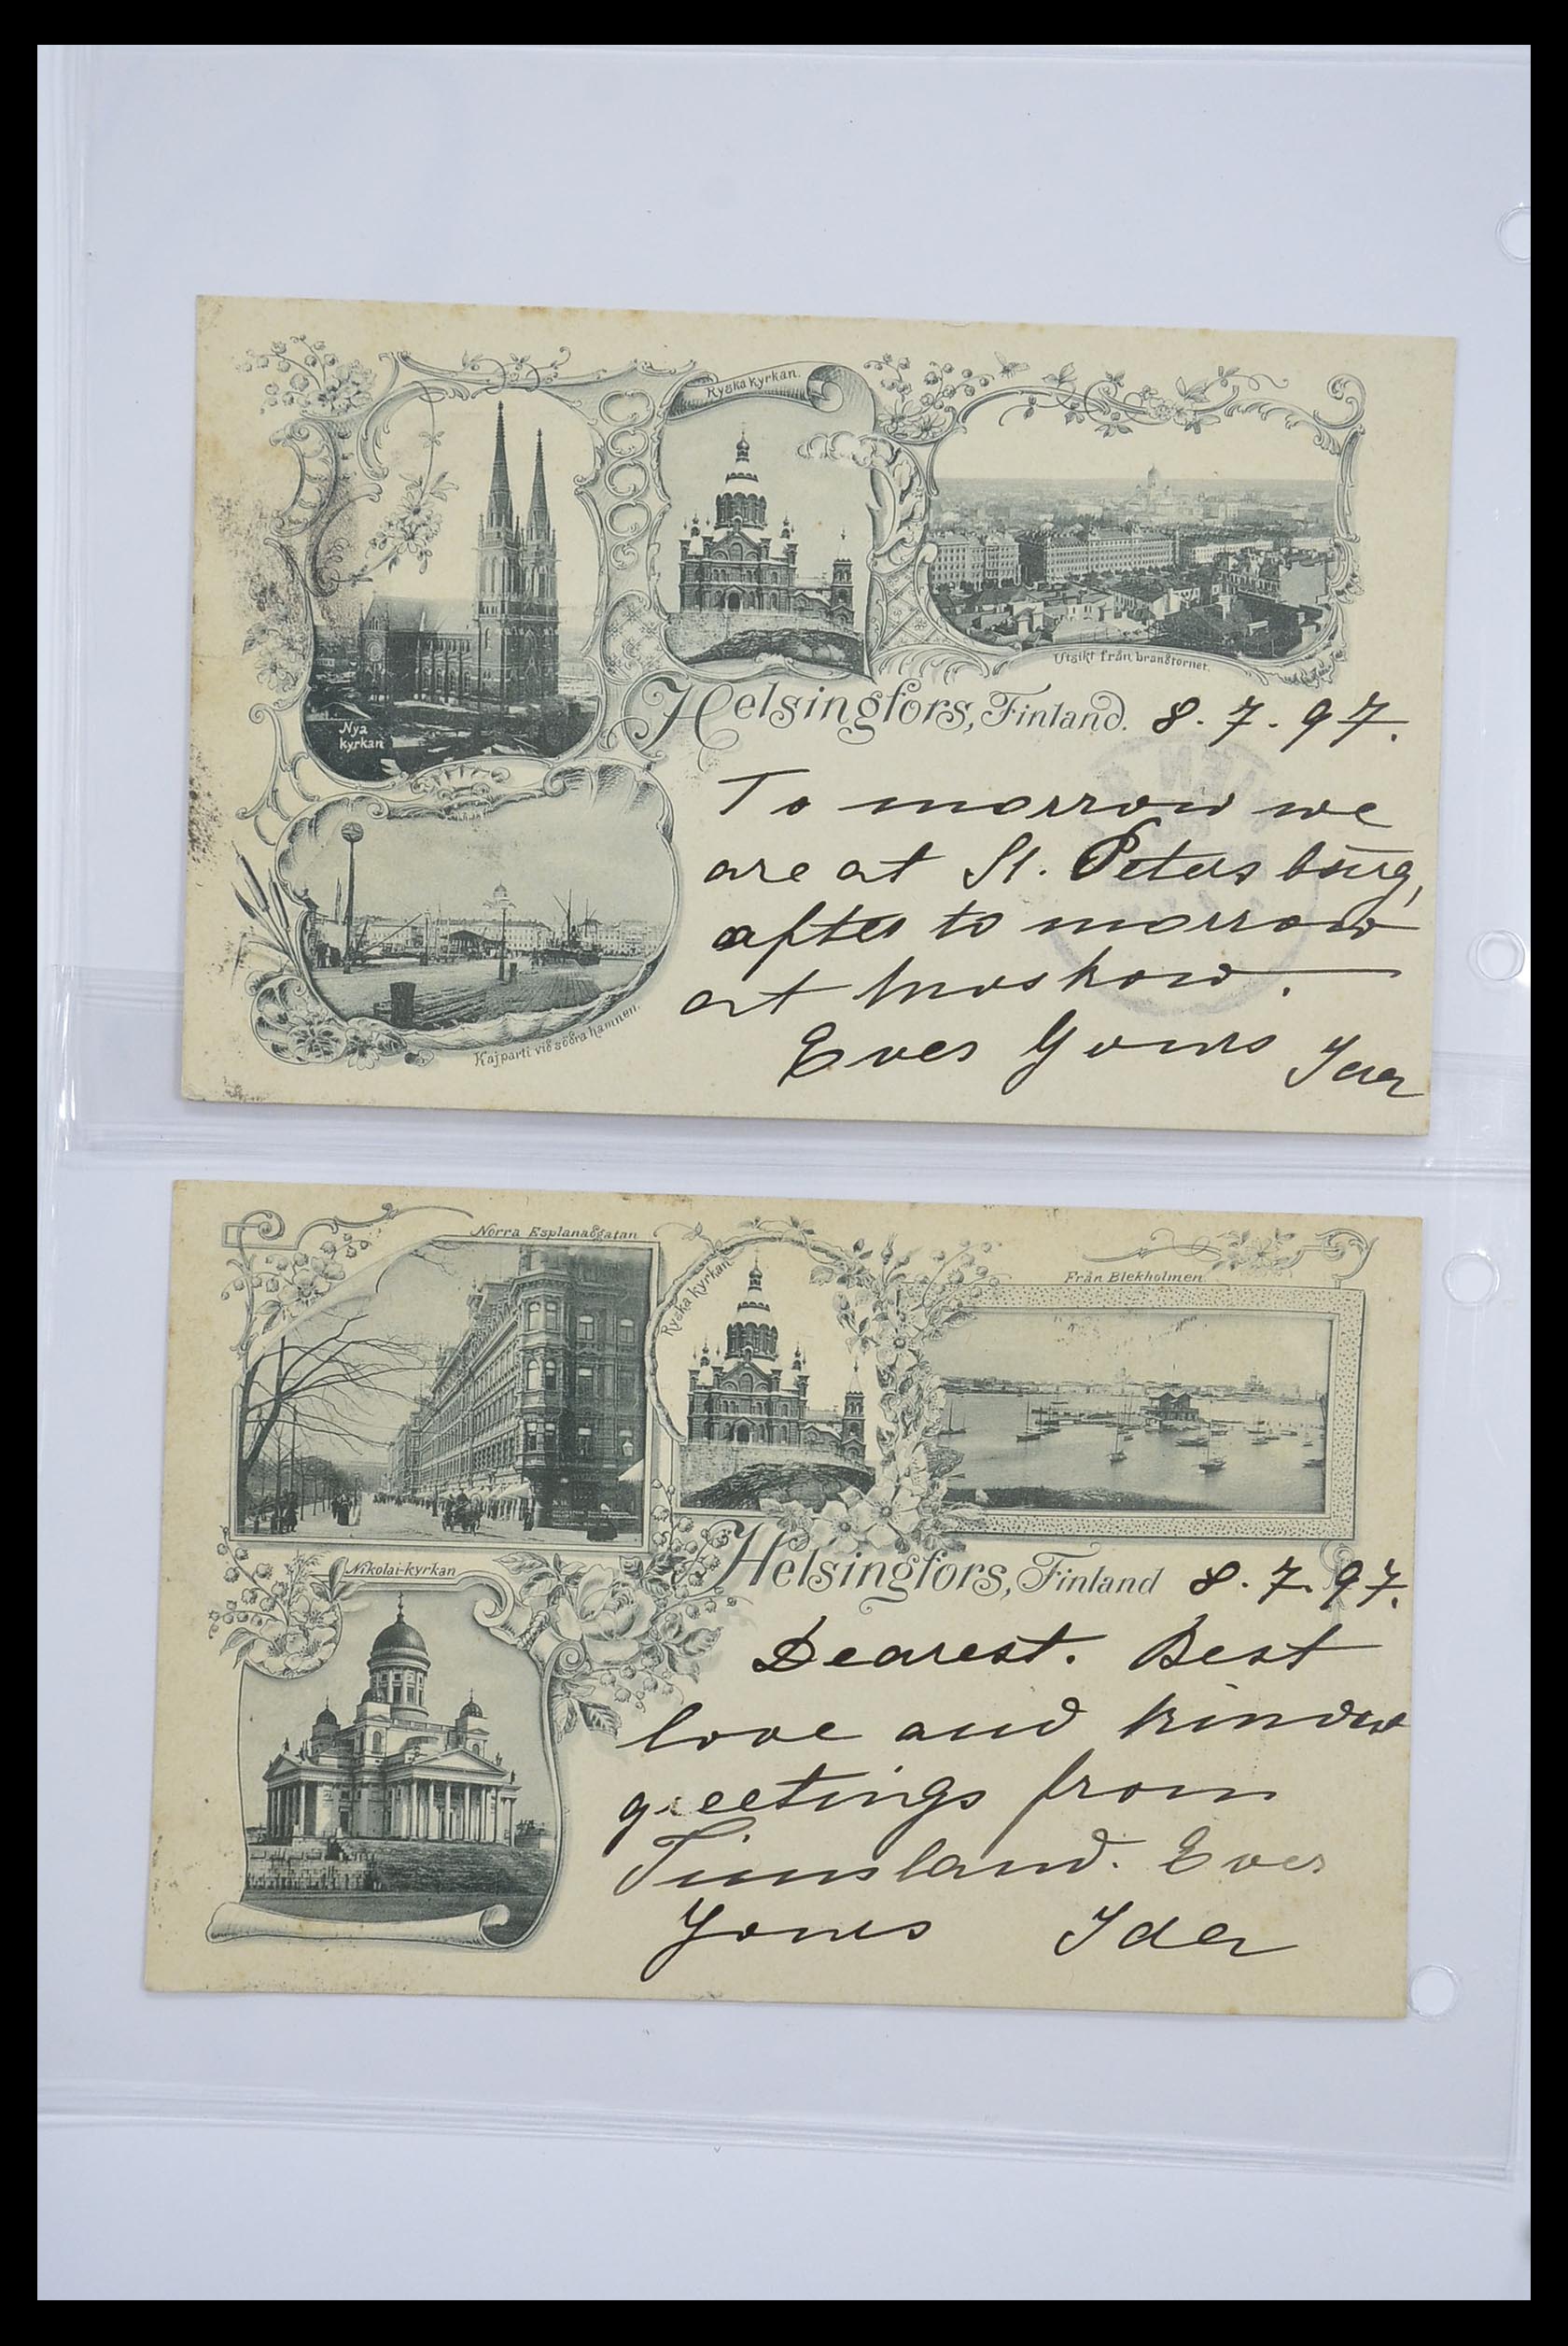 Ryska kyrkan.
Utsikt från brandtornet.
Nya
kyrkan
Helsingfors, Finland. 8.7.97.
To morrow we
are at St. Petersburg,
after to morrow
at Moskow.
Ever Yours Ida
Kajparti vid södra hamnen.
Norra Esplanadgatan
Ryska kyrkan
Från Blekholmen.
Helsingfors, Finland 8.7.97.
Nikolai-kyrkan
Dearest. Best
love and
greetings from
Finnsland. Ever
Yours Ida